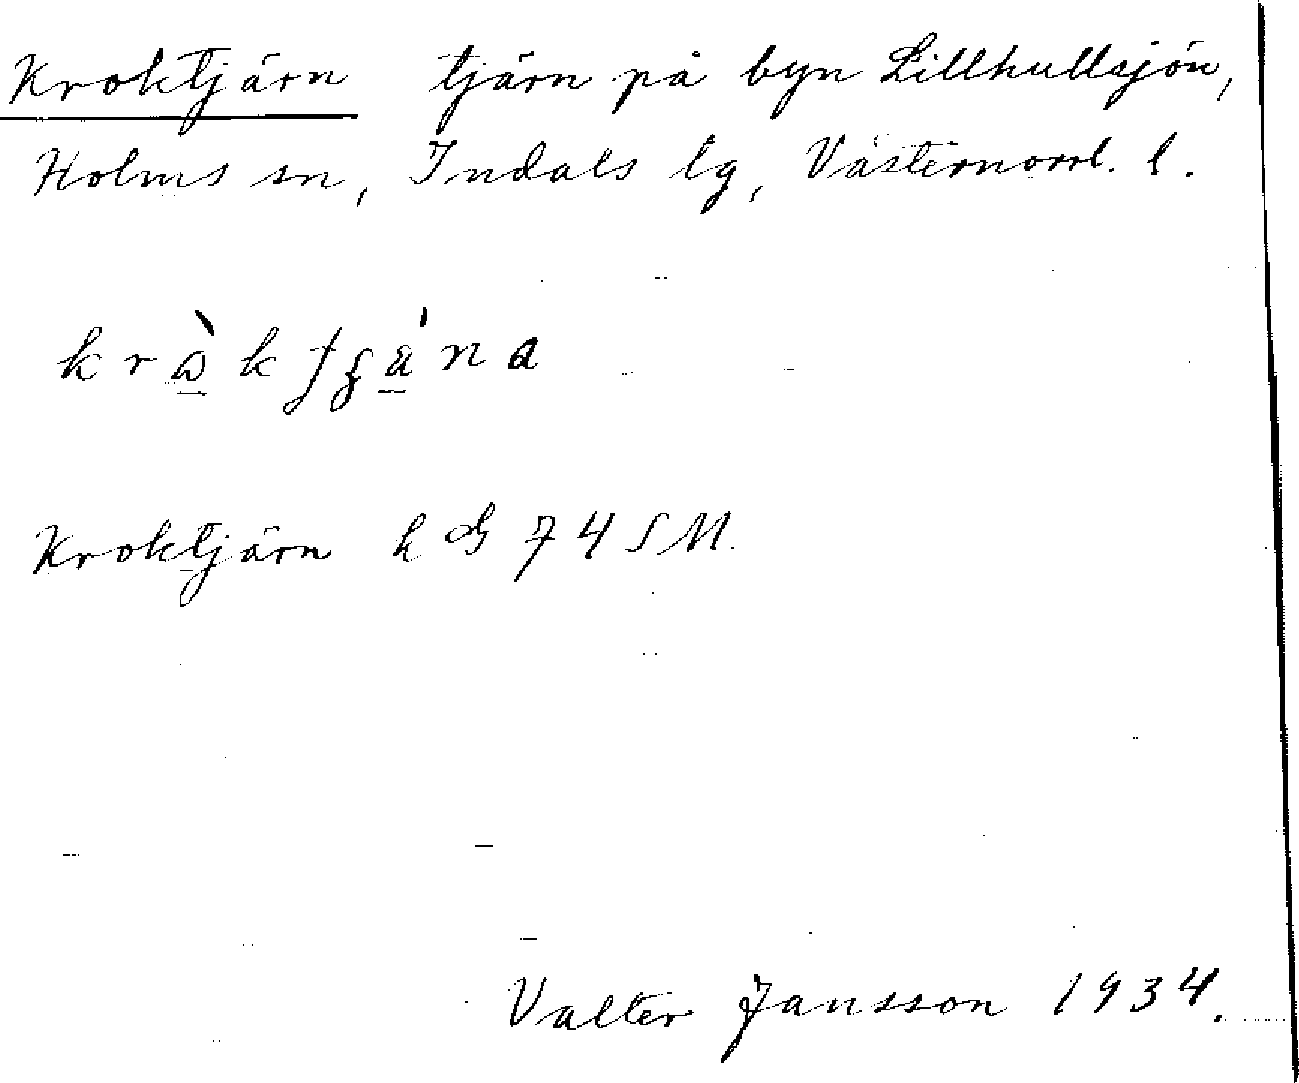 Kroktjärn tjärn på byn Lillhullsjön,
Holms sn, Indals lg, Västernorrl. l.
Kroktjärn k 74 SM.
Valter Jansson 1934.